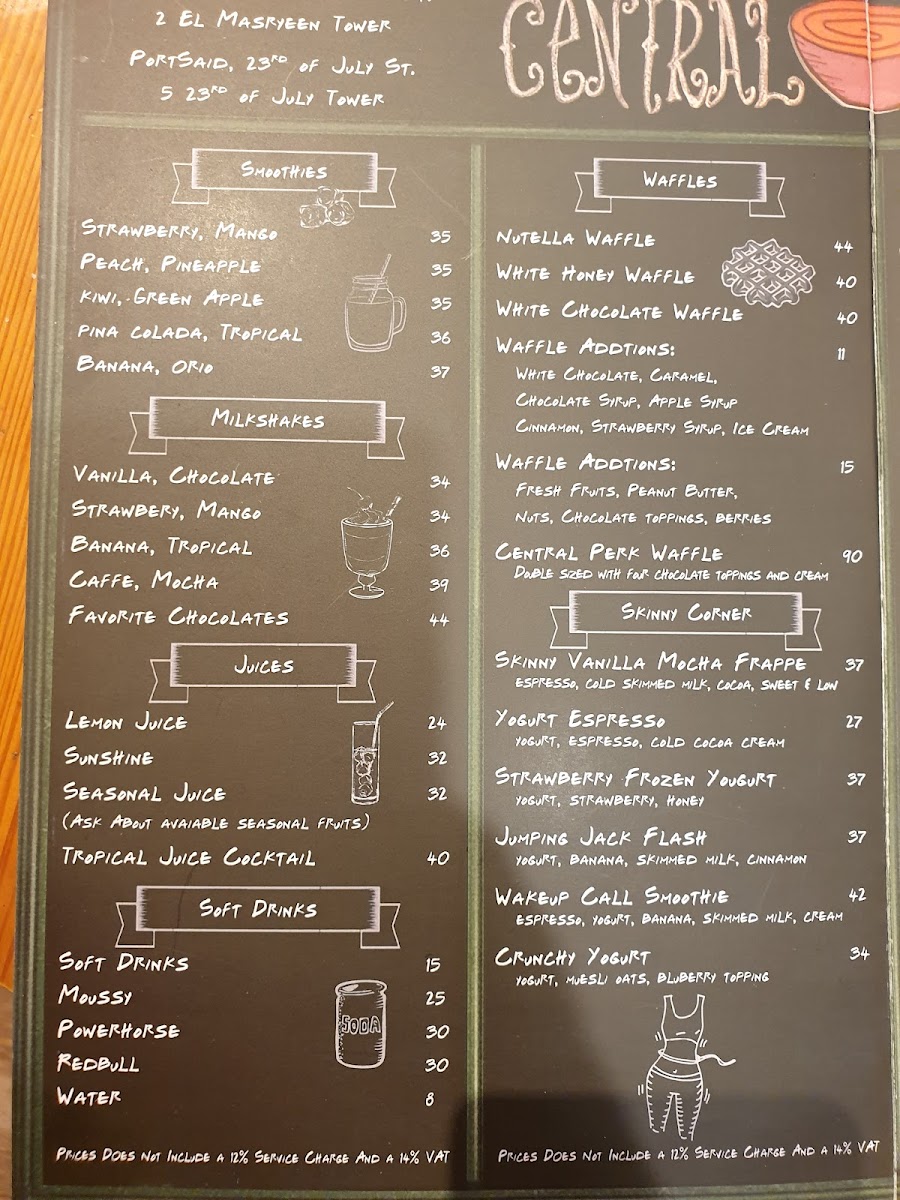 2 El Masryeen Tower
PortSaid, 23rd of July St.
5 23rd of July Tower
CENTRAL
Smoothies
Strawberry, Mango 35
Peach, Pineapple 35
Kiwi, Green Apple 35
Pina Colada, Tropical 36
Banana, Orio 37
Milkshakes
Vanilla, Chocolate 34
Strawbery, Mango 34
Banana, Tropical 36
Caffe, Mocha 39
Favorite Chocolates 44
Juices
Lemon Juice 24
Sunshine 32
Seasonal Juice 32
(Ask About avaiable seasonal fruits)
Tropical Juice Cocktail 40
Soft Drinks
Soft Drinks 15
Moussy 25
Powerhorse 30
Redbull 30
Water 8
SODA
Prices Does Not Include a 12% Service Charge And a 14% VAT
Waffles
Nutella Waffle 44
White Honey Waffle 40
White Chocolate Waffle 40
Waffle Addtions: 11
White Chocolate, Caramel,
Chocolate Syrup, Apple Syrup
Cinnamon, Strawberry Syrup, Ice Cream
Waffle Addtions: 15
Fresh Fruits, Peanut Butter,
Nuts, Chocolate toppings, berries
Central Perk Waffle 90
Double sized with four chocolate toppings and cream
Skinny Corner
Skinny Vanilla Mocha Frappe 37
espresso, cold skimmed milk, cocoa, sweet & low
Yogurt Espresso 27
yogurt, espresso, cold cocoa cream
Strawberry Frozen Yougurt 37
yogurt, strawberry, honey
Jumping Jack Flash 37
yogurt, banana, skimmed milk, cinnamon
Wakeup Call Smoothie 42
espresso, yogurt, banana, skimmed milk, cream
Crunchy Yogurt 34
yogurt, muesli oats, bluberry topping
Prices Does Not Include a 12% Service Charge And a 14% VAT